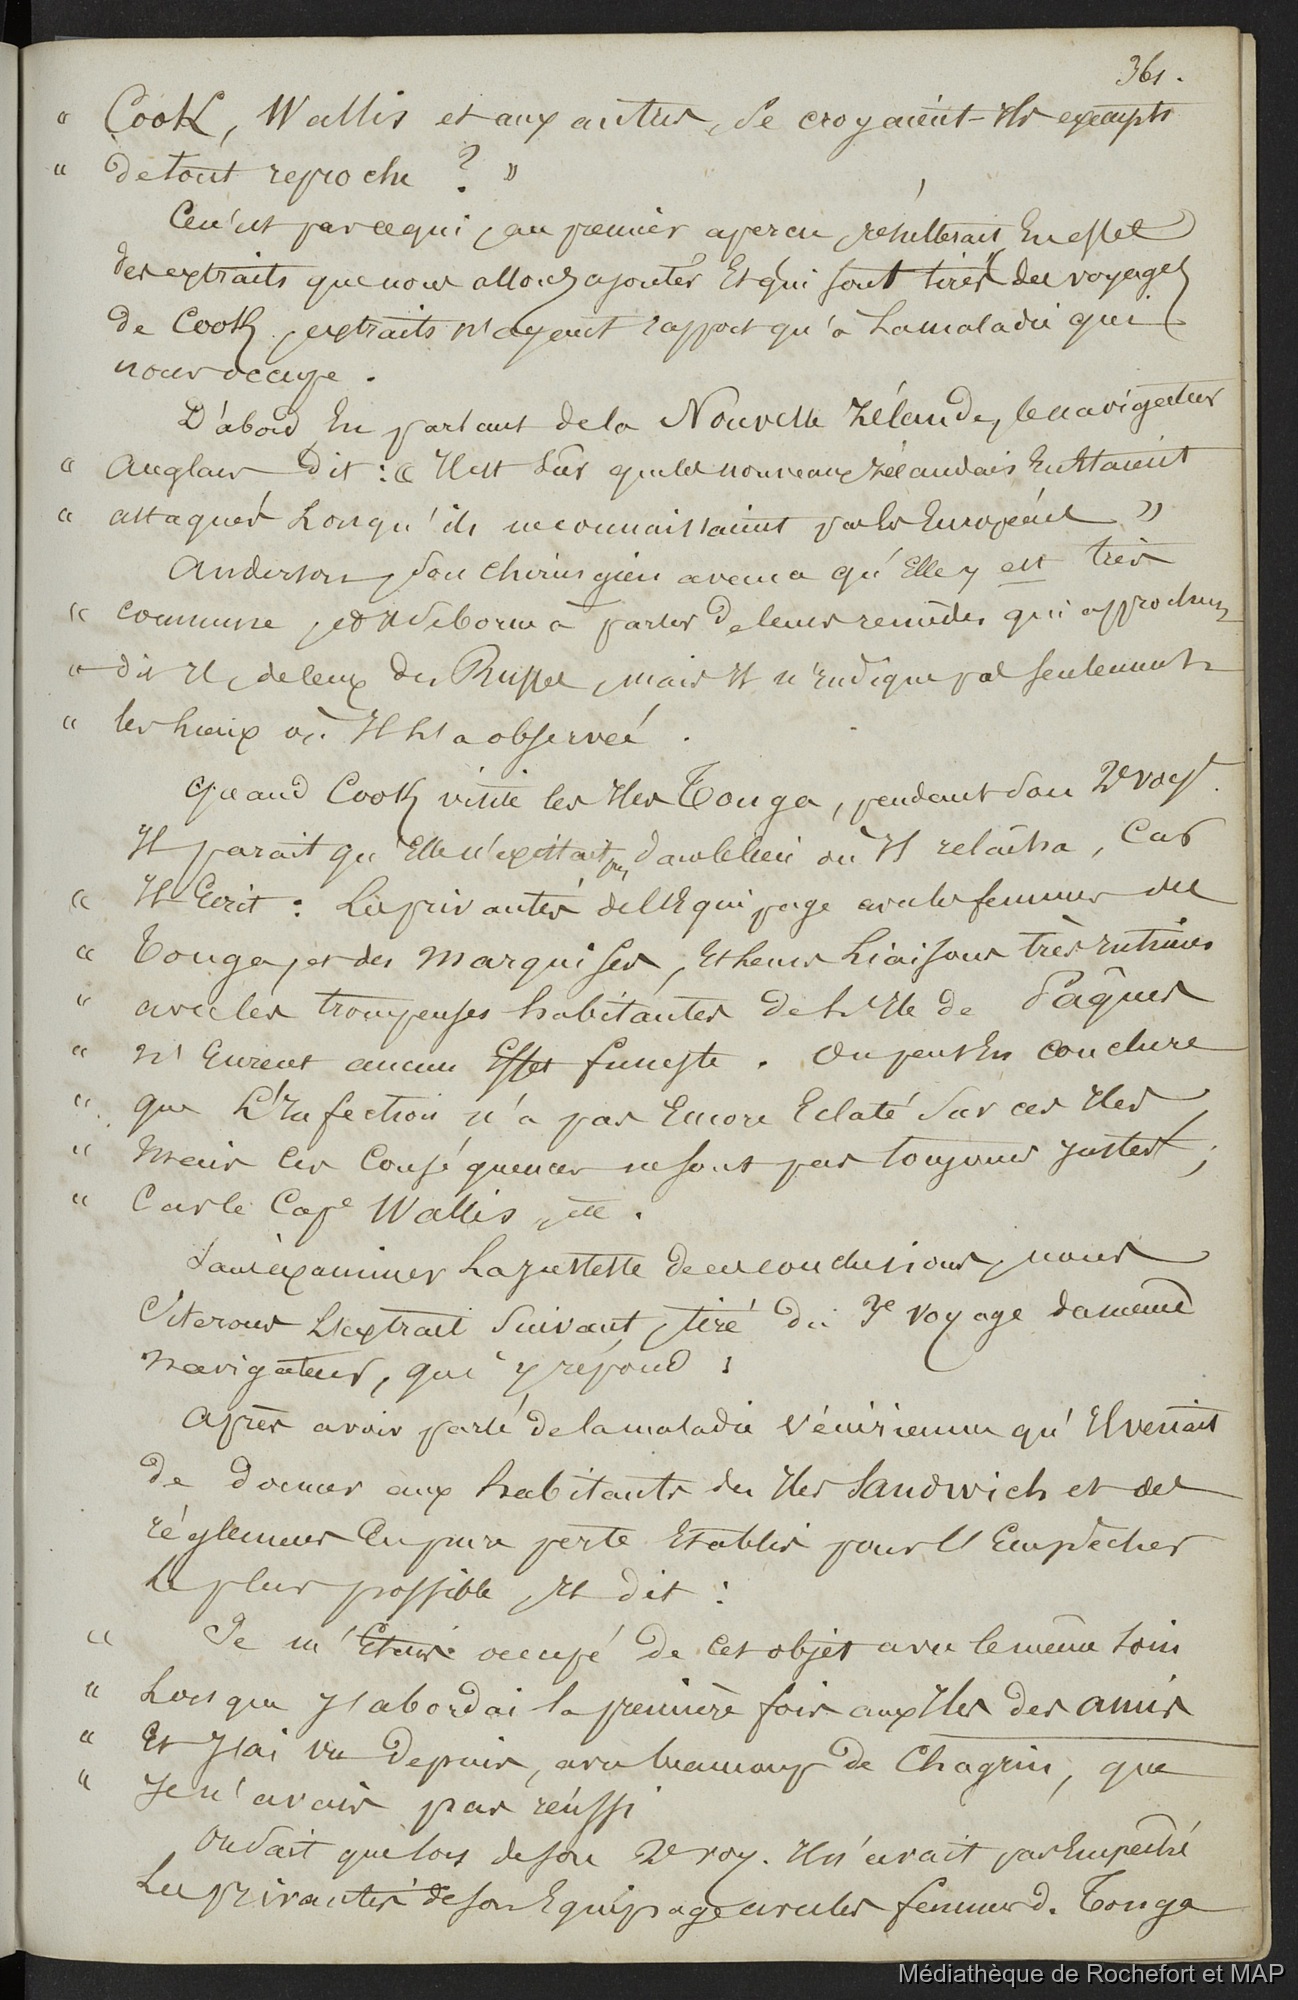 361.
" Cook, Wallis et aux autres, se croyaient-Ils exempts
" de tout reproche ? "
Ce n'est pas ce qui, au premier apercu, résulterait En effet
des extraits que nous allons ajouter Et qui sont tirés des voyages
de Cook, extraits n'ayant rapport qu'à La maladie qui
nous occupe.
D'abord En parlant de la Nouvelle Zélande, le navigateur
" Anglais dit : " Il est sûr que les nouveaux zélandais En Etaient
" attaqués Lorsqu'ils ne connaissaient pas les Européens "
Anderson, son chirurgien avoua qu'Elle y est très
" commune, et Il se borne à parler de leurs remèdes qui approchent,
" dit Il, de ceux des Russes, mais Il n'Indique pas seulement
" les lieux où Il l'a observée.
Quand Cook visite les Iles Tonga, pendant son 2e voye.
Il parait qu'Elle n'existait pas dans le lieu où Il relâcha, Car
" Il Ecrit : Les privautés de l'Equipage avec les femmes des
" Tonga, et des Marquises, Et leurs Liaisons très intimes
" avec les trompeuses habitantes de L'Ile de Pâques
" n'Eurent aucun Effet funeste. On peut En conclure
" que L'Infection n'a pas Encore Eclaté sur ces Iles,
" Mais ces Conséquences ne sont pas toujours justes ;
" Car le Cape Wallis, etc.
Sans Examiner La justesse de ces conclusions, nous
Citerons L'extrait suivant, tiré du 3e voyage du même
navigateur, qui y répond :
Après avoir parlé de la maladie vénérienne qu'Il venait
de donner aux habitants des Iles Sandwich et des
réglemens En pure perte Etablis pour l'Empêcher
le plus possible, Il dit :
" Je m'Etais occupé de Cet objet avec le même soin
" Lorsque j'abordai la première fois aux Iles des amis
" Et j'ai vu depuis, avec beaucoup de Chagrin, que
" Je n'avais pas réussi
On sait que lors de son 2e voy. Il n'avait pas Empêché
Les privautés de son Equipage avec les femmes d. Tonga
Médiathèque de Rochefort et MAP